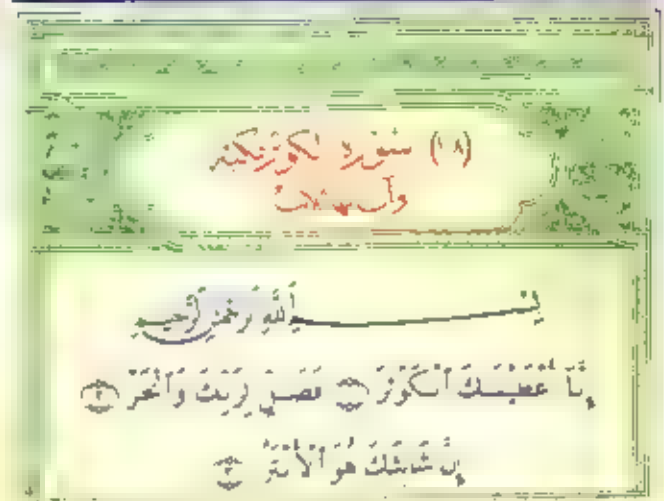 (١٠٨) سُورَة الكوثر مكية
وآياتها ثلاث
بِسْمِ اللَّهِ الرَّحْمَٰنِ الرَّحِيمِ
إِنَّا أَعْطَيْنَاكَ الْكَوْثَرَ ۝١ فَصَلِّ لِرَبِّكَ وَانْحَرْ ۝٢
إِنَّ شَانِئَكَ هُوَ الْأَبْتَرُ ۝٣